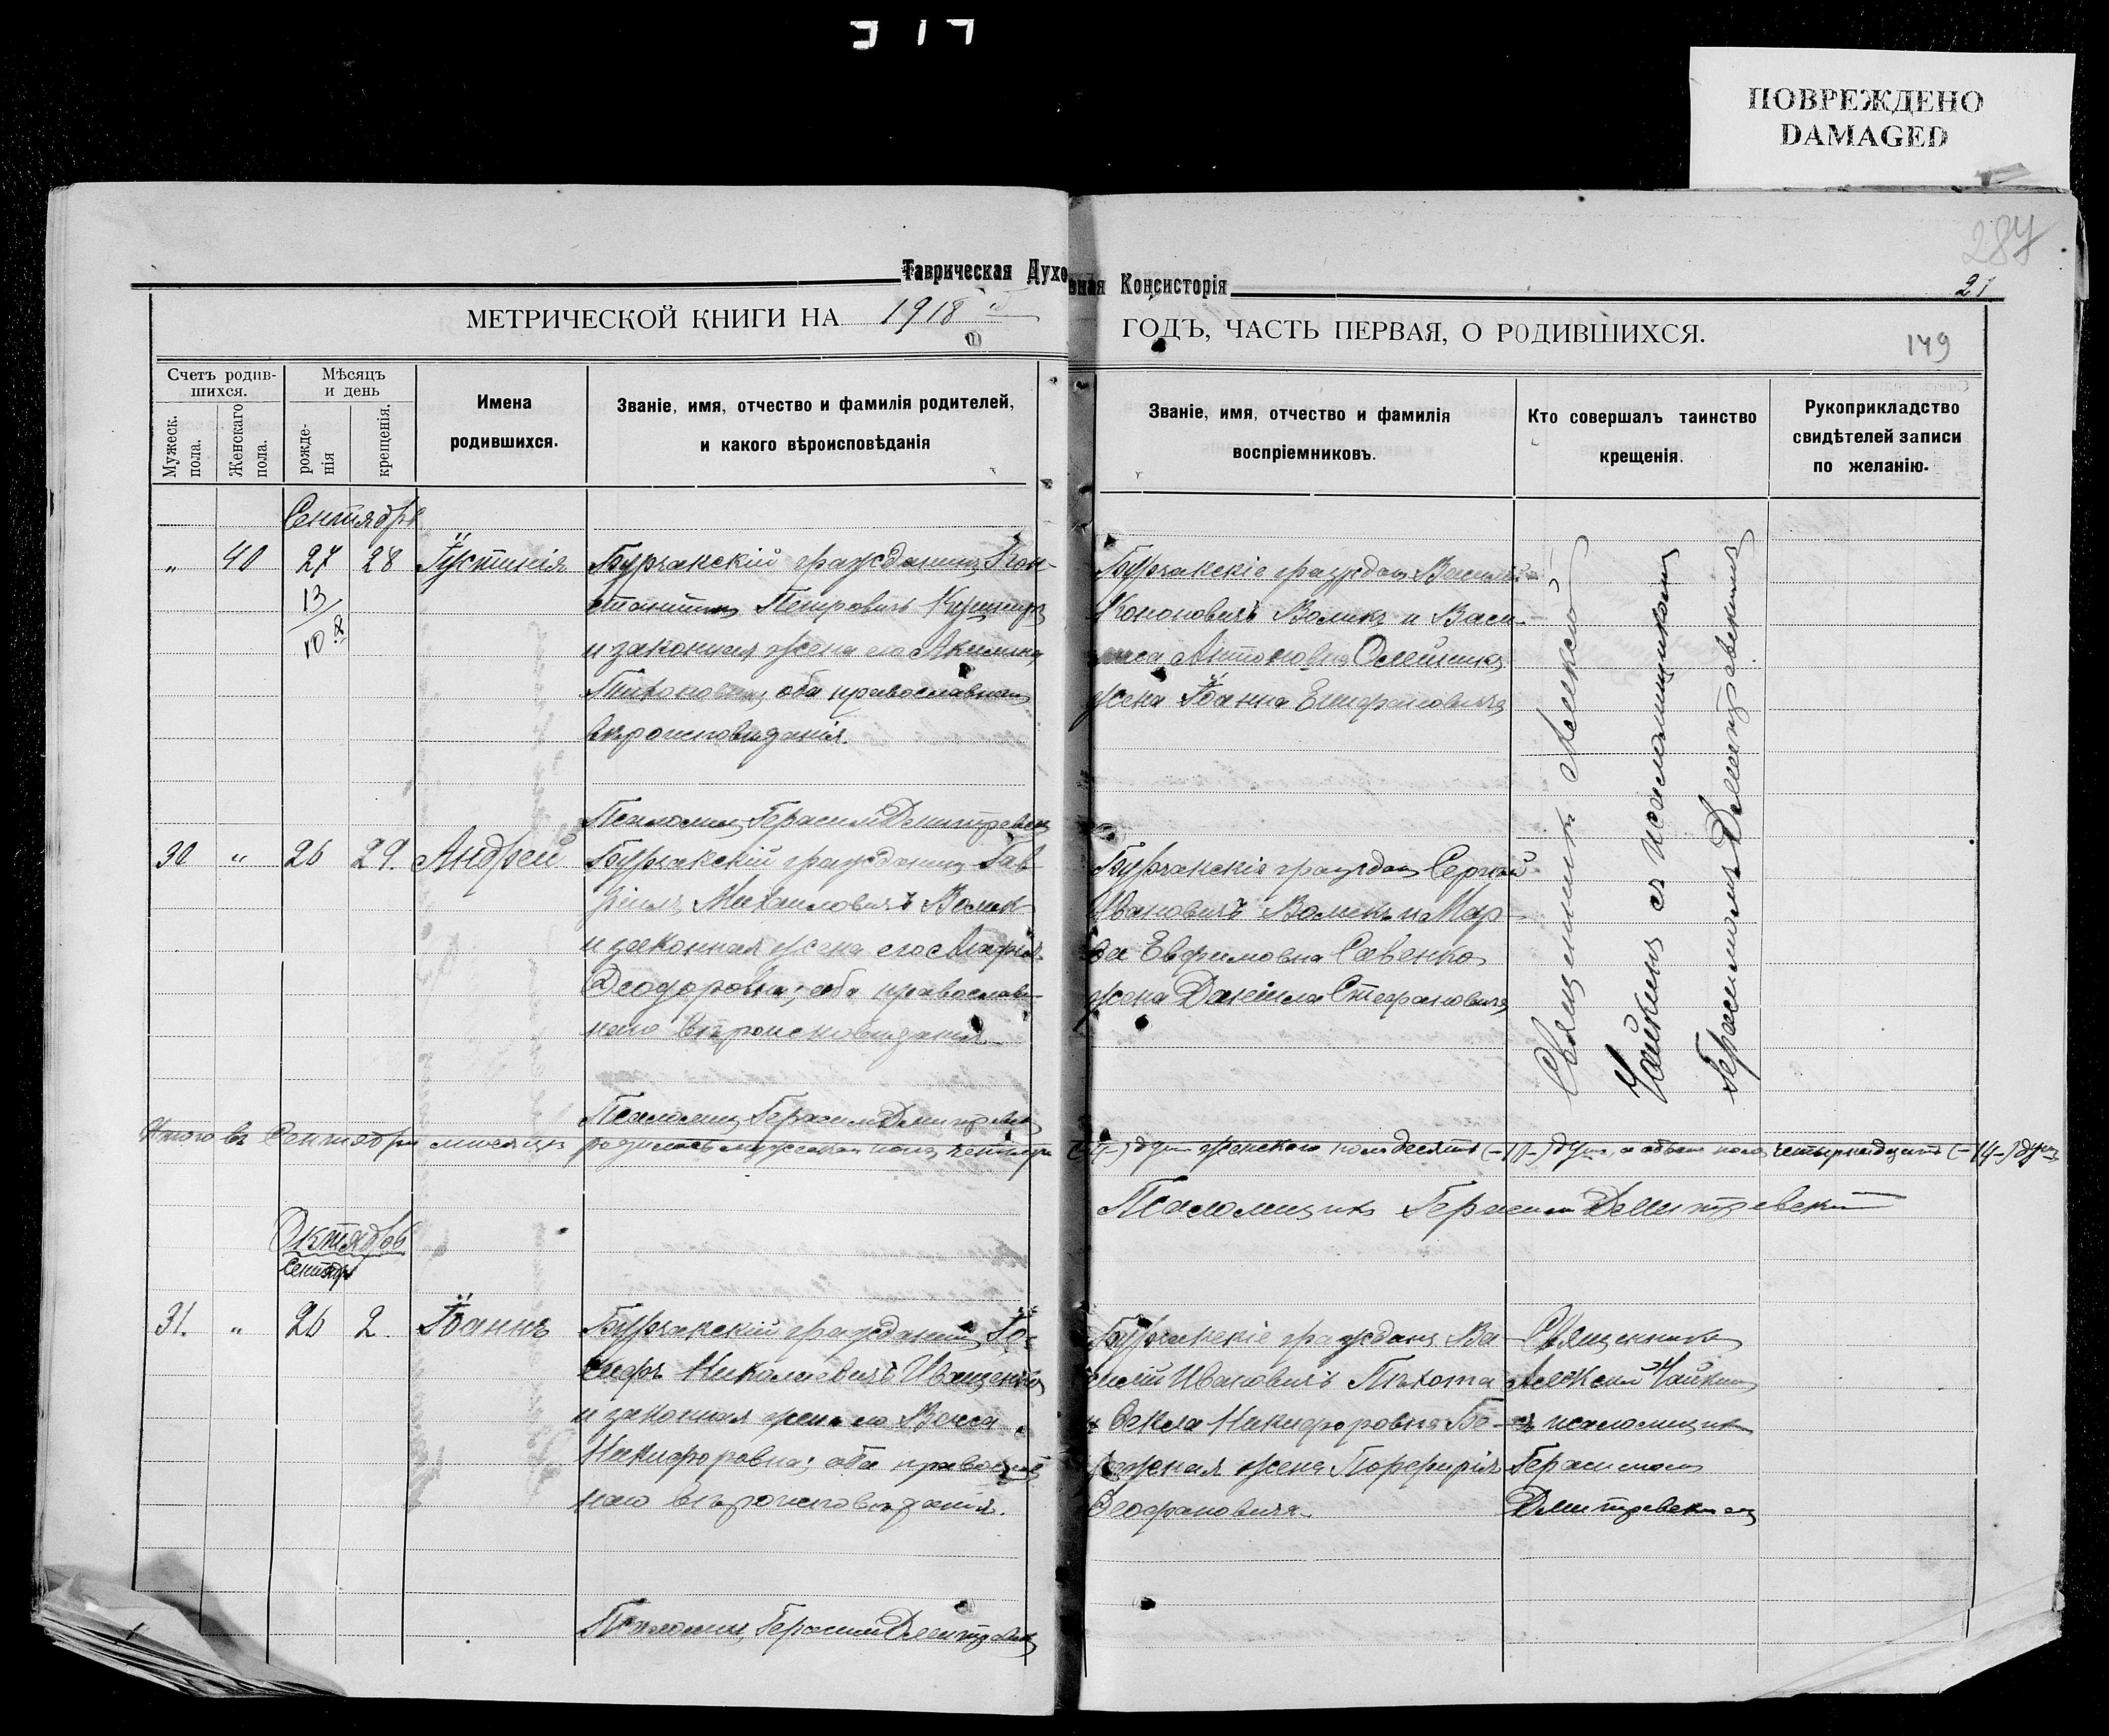 ПОВРЕЖДЕНО
DAMAGED
287
Таврическая Духовная Консисторія
21
МЕТРИЧЕСКОЙ КНИГИ НА 1918 й
ГОДЪ, ЧАСТЬ ПЕРВАЯ, О РОДИВШИХСЯ.
149
Счетъ родив-
шихся.
Мужеск.
пола.
Женскаго
пола.
Мѣсяцъ
и день
рожде-
нія
крещенія.
Имена
родившихся.
Званіе, имя, отчество и фамилія родителей,
и какого вѣроисповѣданія
Званіе, имя, отчество и фамилія
воспріемниковъ.
Кто совершалъ таинство
крещенія.
Рукоприкладство
свидѣтелей записи
по желанію.
Сентябрь
„ 40 27 28 Іустинія
13/10
Бурчакскій гражданинъ Кон-
стантинъ Петровичъ
и законная жена его Акилина
Тихоновна; оба православнаго
вѣроисповѣданія.
Псаломщ. Герасим Дмитревск
Бурчакскіе граждан. Василій
Кононовичъ Воликъ и Васи-
лиса Антоновна Олейникъ
жена Іоанна Епифановича
Священникъ Алексій
Чайкинъ съ псаломщикомъ
Герасимомъ Дмитревскимъ
30 „ 26 29. Андрей
Бурчакскій гражданинъ Гав-
ріилъ Михаиловичъ Волик
и законная жена его Марія
Ѳеодоровна; оба православ-
наго вѣроисповѣданія.
Псаломщ. Герасим Дмитревск
Бурчакскіе граждан. Сергій
Ивановичъ Воликъ и Мар-
ѳа Евфимовна Савенко
жена Даніила Стефановича
Итого въ Сентябрѣ мѣсяцѣ родилось мужеска пола четыре (-4-) душ женского пола десять (-10-) душ, а обоего пола четырнадцать (-14-) душ
Псаломщикъ Герасим Дмитревскій
Октябрь
Сентябр
31. „ 26 2. Іоаннъ
Бурчакскій гражданин Іо-
сифъ Николаевичъ Иващенко
и законная жена его Васса
Никифоровна; оба православ
наго вѣроисповѣданія.
Псаломщ. Герасим Дмитревск
Бурчакскіе граждан. Ва-
силій Ивановичъ Пѣхота
и Ѳекла Никифоровна Бе-
жена Порфирія
Ѳеофановича.
Священникъ
Алексій Чайкин
съ псаломщик
Герасимом
Дмитревским